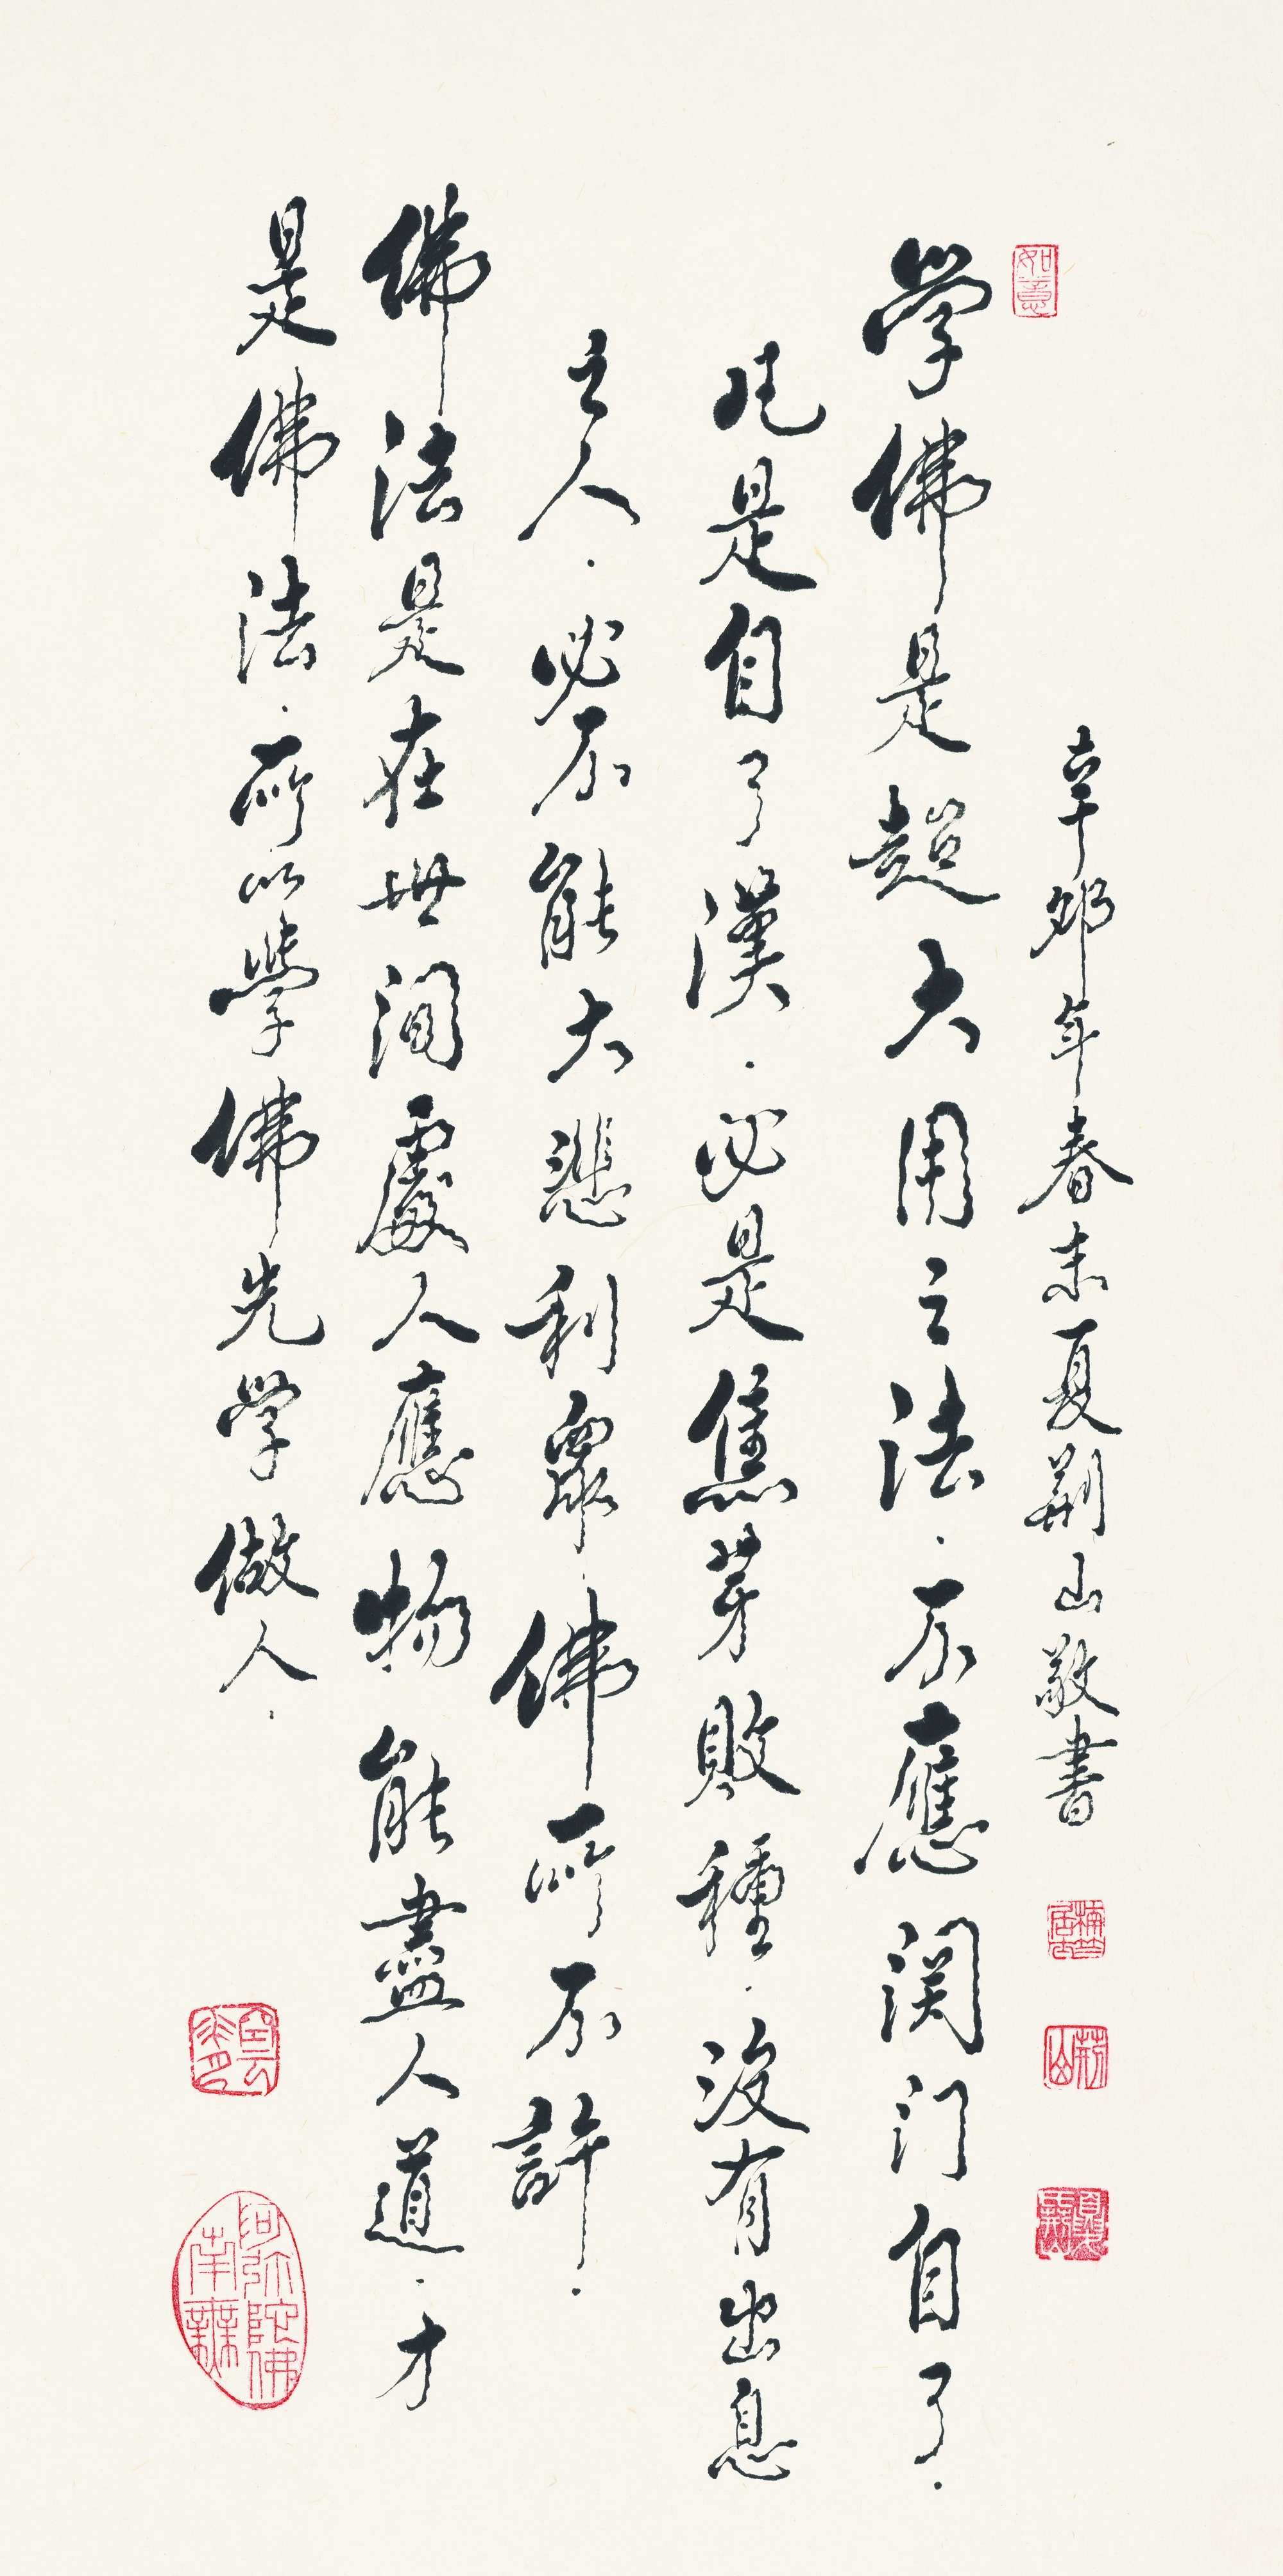 如意
辛卯年春末夏荆山敬書
学佛是超大用之法．不應関门自了．
凡是自了漢．必是焦芽敗種．没有出息
之人．必不能大悲利衆．佛所不許．
佛法是在世間處人應物能盡人道．才
是佛法．所以學佛先学做人．
荊山
阿弥陀佛
南無